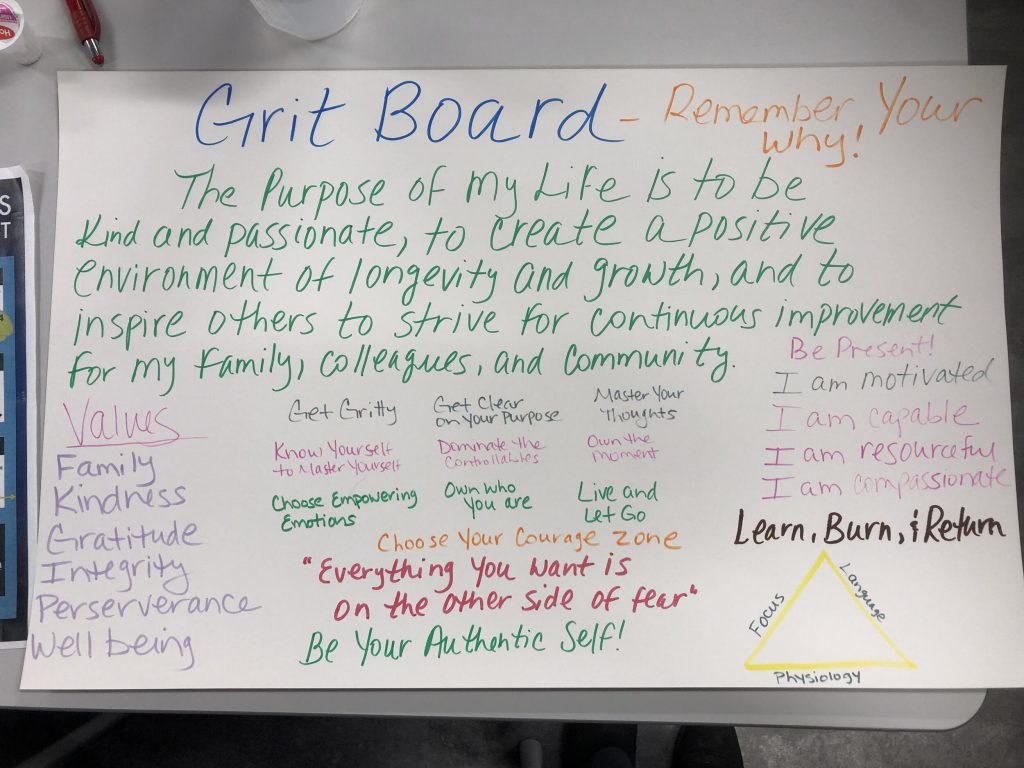 Grit Board - Remember Your
Why!
The Purpose of my Life is to be
kind and passionate, to create a positive
environment of longevity and growth, and to
inspire others to strive for continuous improvement
for my family, colleagues, and community.
Be Present!
I am motivated
I am capable
I am resourceful
I am compassionate
Values
Family
Kindness
Gratitude
Integrity
Perserverance
Well being
Get Gritty
Get Clear
on Your Purpose
Master Your
Thoughts
Know Yourself
to Master Yourself
Dominate the
Controllables
Own the
moment
Choose Empowering
Emotions
Own who
You are
Live and
Let Go
Choose Your Courage zone
"Everything You Want is
on the other side of fear"
Be Your Authentic Self!
Learn, Burn, & Return
Focus
Language
Physiology
S
T